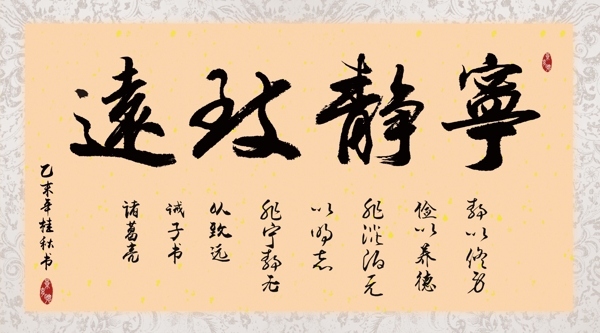 寧静致遠
静以修身
俭以养德
非淡泊无
以明志
非宁静无
以致远
诫子书
诸葛亮
乙未年桂秋书